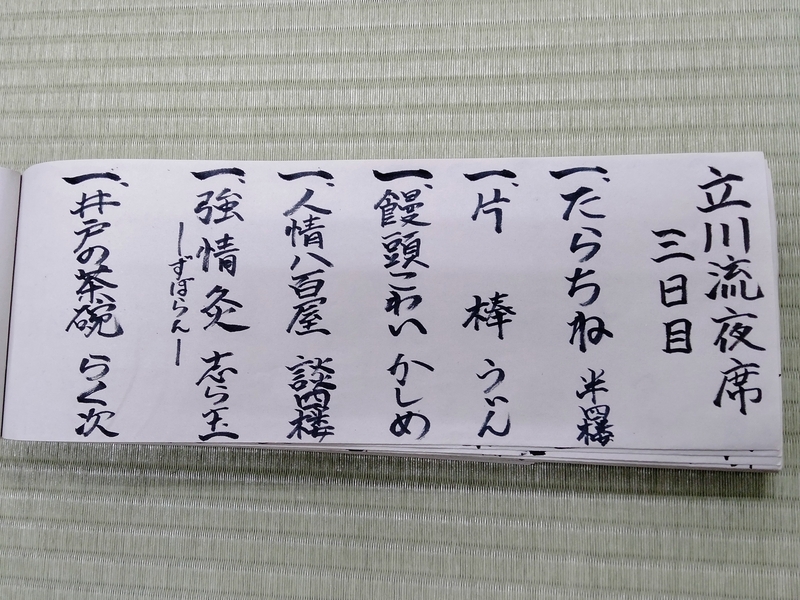 立川流夜席
三日目
一、たらちね 半四楼
一、片棒 うぃん
一、饅頭こわい かしめ
一、人情八百屋 談四楼
一、強情灸 志ら玉
―ずぼらん―
一、井戸の茶碗 らく次